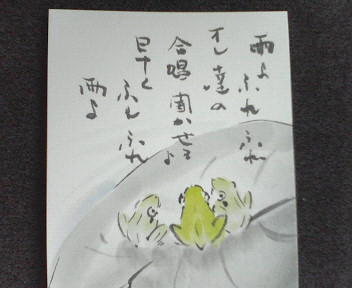 雨よふれふれ
オレ達の
合唱聞かせるよ
早くふれふれ
雨よ